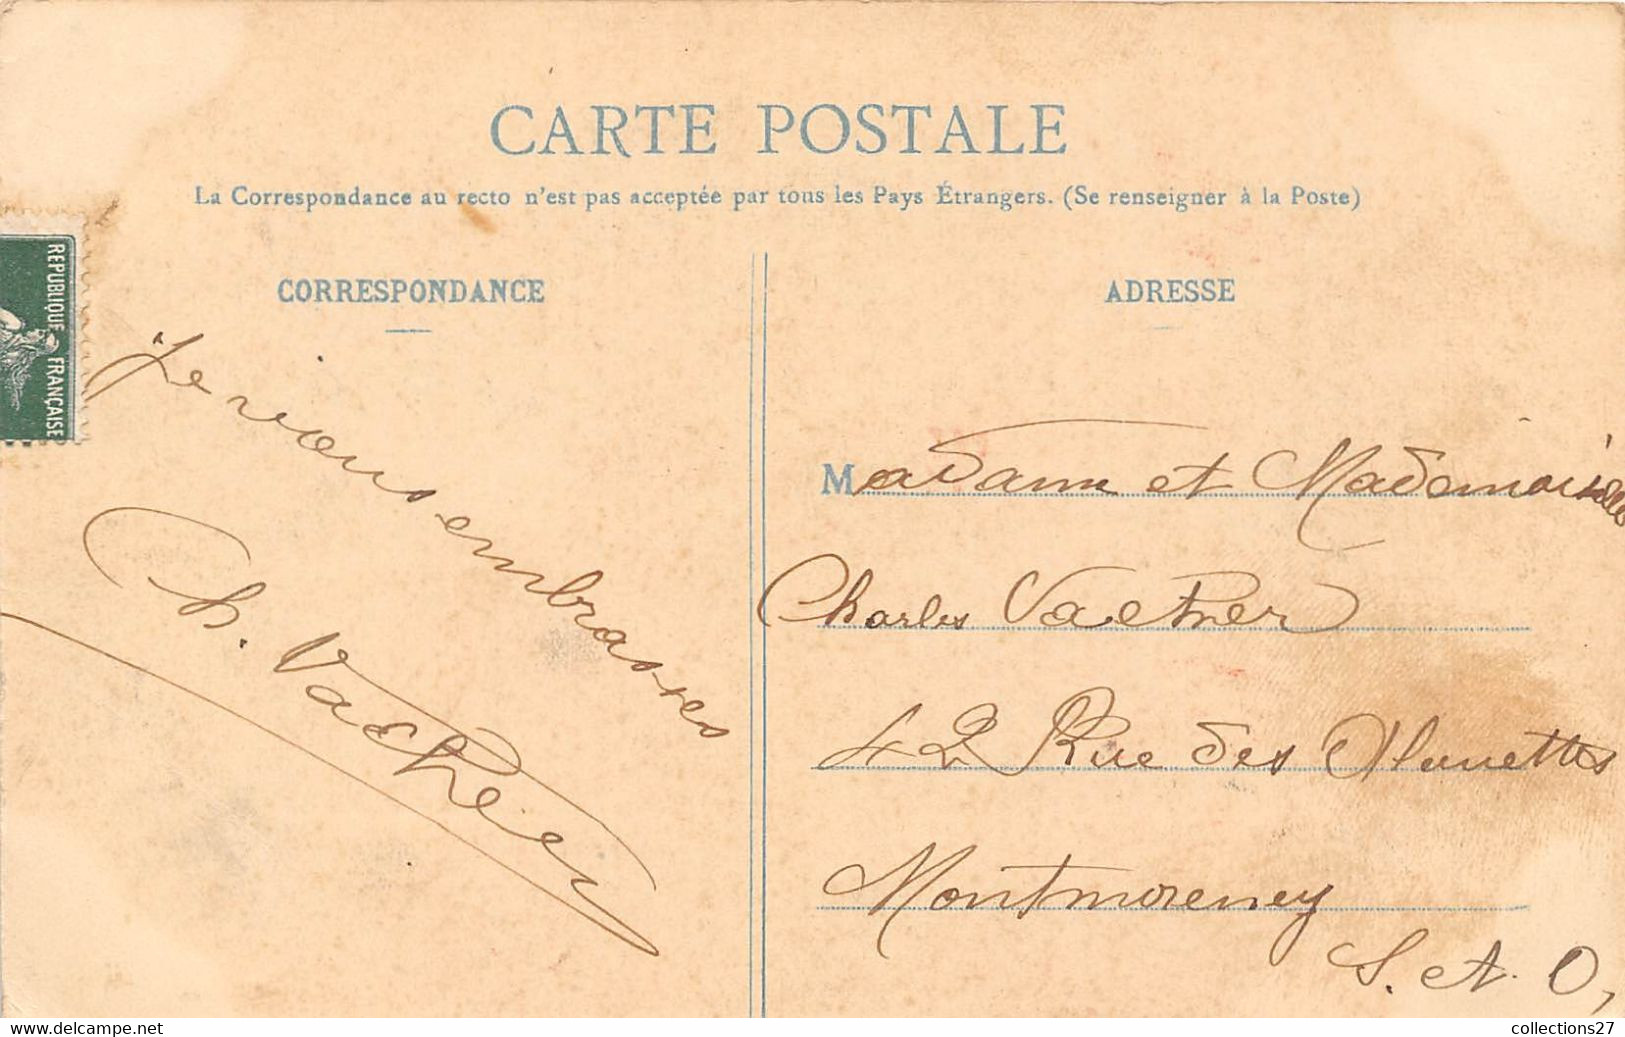 CARTE POSTALE
La Correspondance au recto n'est pas acceptée par tous les Pays Étrangers. (Se renseigner à la Poste)
REPUBLIQUE FRANÇAISE
CORRESPONDANCE
Je vous embrasses
Ch. Vacher
ADRESSE
Madame et Mademoiselle
Charles Vacher
42 Rue des
Montmorency
S. et O,
collections27